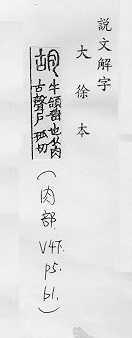 說文解字
大徐本
胡 牛頷垂也从肉
古聲戶孤切
(肉部 V4下. p5. b1.)